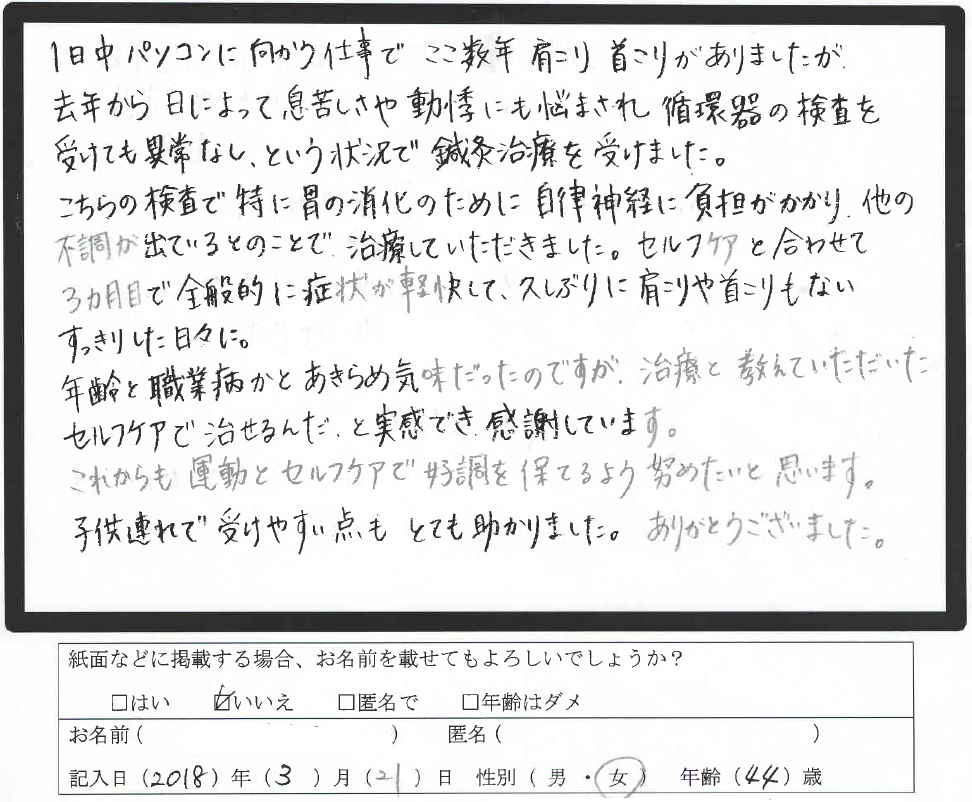 1日中パソコンに向かう仕事で ここ数年 肩こり 首こりがありましたが、
去年から 日によって息苦しさや 動悸にも悩まされ 循環器の検査を
受けても異常なし、という状況で 鍼灸治療を受けました。
こちらの検査で 特に胃の消化のために 自律神経に負担がかかり、他の
不調が出ているとのことで、治療していただきました。セルフケアと合わせて
3カ月目で全般的に症状が軽快して、久しぶりに肩こりや首こりもない
すっきりした日々に。
年齢と職業病かとあきらめ気味だったのですが、治療と 教えていただいた
セルフケアで治せるんだ、と実感でき、感謝しています。
これからも 運動とセルフケアで好調を保てるよう 努めたいと思います。
子供連れで受けやすい点も とても助かりました。 ありがとうございました。
紙面などに掲載する場合、お名前を載せてもよろしいでしょうか？
□はい ☑いいえ □匿名で □年齢はダメ
お名前（ ） 匿名（ ）
記入日（2018）年（3）月（21）日 性別（男・女） 年齢（44）歳